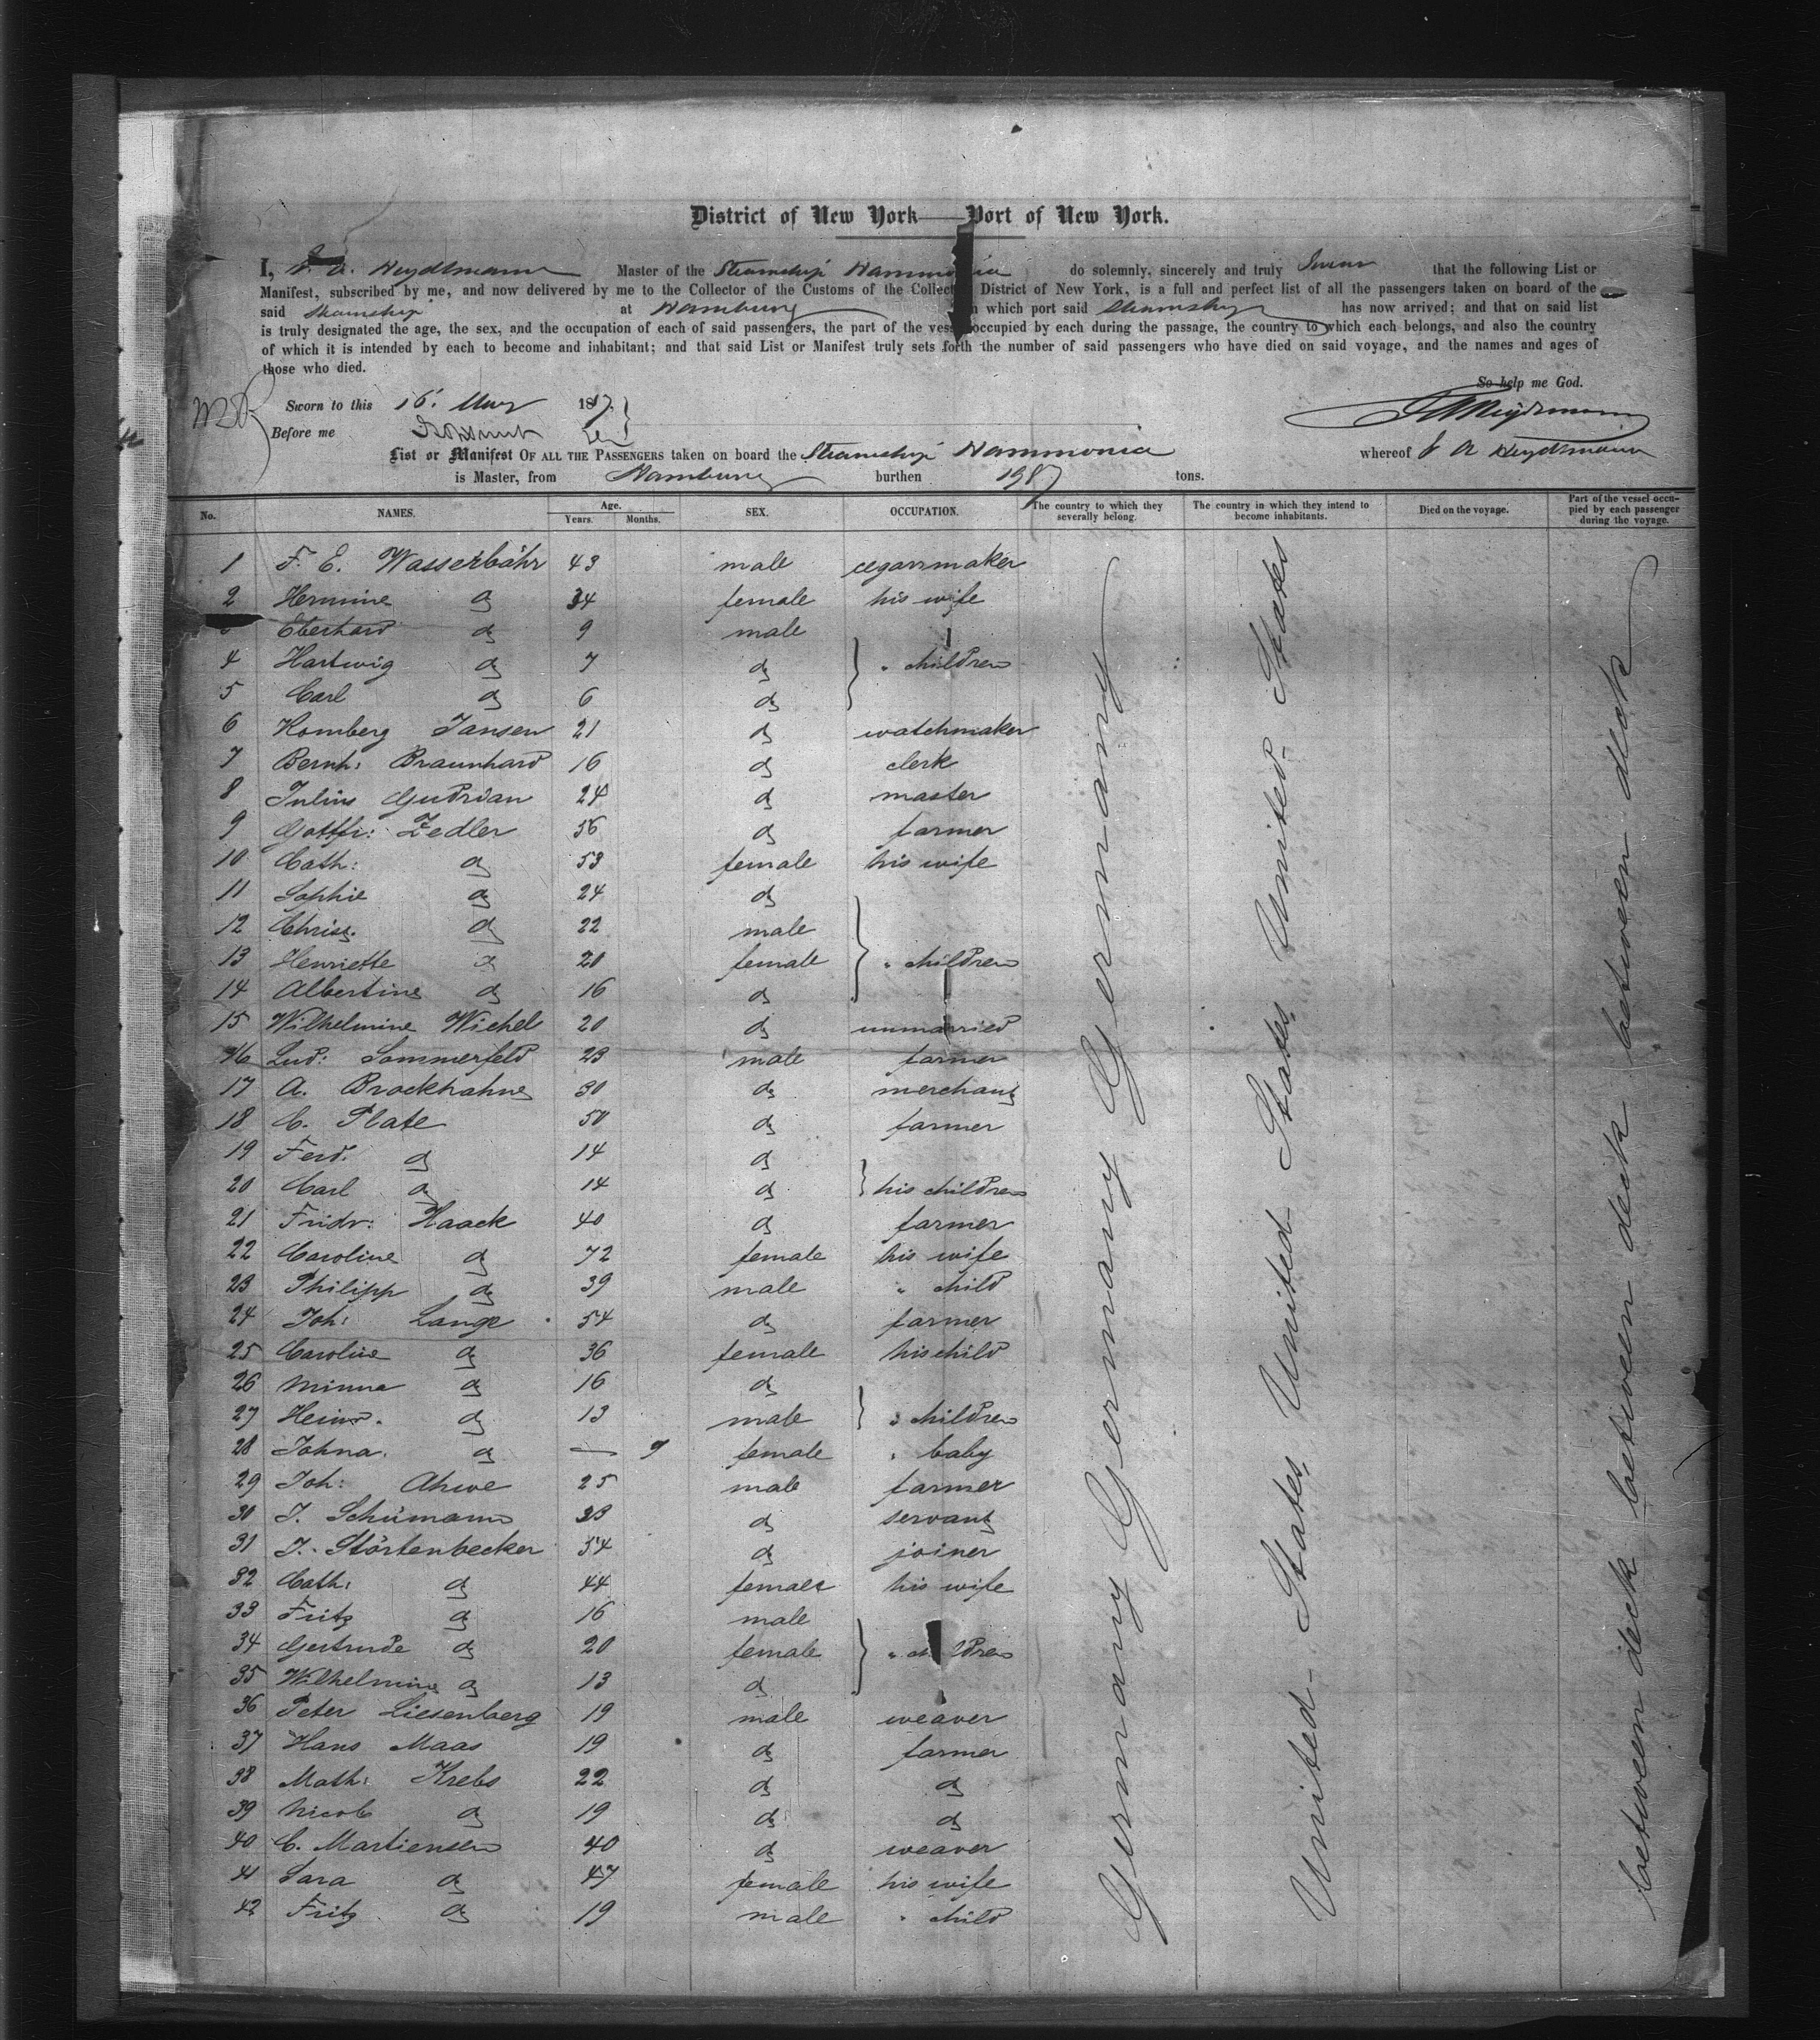 District of New York—Port of New York.
I, Heydtmann Master of the Steamship Hammonia do solemnly, sincerely and truly Swear that the following List or
Manifest, subscribed by me, and now delivered by me to the Collector of the Customs of the Collect District of New York, is a full and perfect list of all the passengers taken on board of the
said Steamship at Hamburg which port said Steamship has now arrived; and that on said list
is truly designated the age, the sex, and the occupation of each of said passengers, the part of the vess occupied by each during the passage, the country to which each belongs, and also the country
of which it is intended by each to become and inhabitant; and that said List or Manifest truly sets forth the number of said passengers who have died on said voyage, and the names and ages of
those who died.
So help me God.
Sworn to this 16. 18
Before me
List or Manifest OF ALL THE PASSENGERS taken on board the Steamship Hammonia whereof Heydtmann
is Master, from Hamburg burthen 1987 tons.
No. NAMES. Age. Years. Months. SEX. OCCUPATION. The country to which they severally belong. The country in which they intend to become inhabitants. Died on the voyage. Part of the vessel occupied by each passenger during the voyage.
1 F. E. Wasserböhr 43 male cegarrmaker
2 Hermine do 34 female his wife
Eberhard do 9 male
4 Hartwig do 7 do " children
5 Carl do 6 do
6 Homberg Jansen 21 do watchmaker
7 Bernh: Braunhard 16 do clerk
8 Julius Gudrian 24 do master
9 Gottfr: Zedler 56 do farmer
10 Cath: do 53 female his wife
11 Sophie do 24 do
12 Christ. do 22 male
13 Henriette do 20 female " children
14 Albertine do 16 do
15 Wilhelmine Wichel 20 do unmarried
16 Lud: Sommerfeld 23 male farmer
17 A. Brockhahne 30 do merchant
18 C. Plate 50 do farmer
19 Ferd. do 14 do
20 Carl do 14 do his children
21 Fridr: Haack 40 do farmer
22 Caroline do 72 female his wife
23 Philipp do 39 male " child
24 Joh: Lange 54 do farmer
25 Caroline do 36 female his child
26 Minna do 16 do
27 Heinr. do 13 male " children
28 Johna. do — 9 female " baby
29 Joh: Ahwe 25 male farmer
30 J. Schümann 23 do servant
31 J. Störtenbecker 54 do joiner
32 Cath: do 44 female his wife
33 Fritz do 16 male
34 Gertrude do 20 female " children
35 Wilhelmine do 13 do
36 Peter Liesenberg 19 male weaver
37 Hans Maas 19 do farmer
38 Math: Krebs 22 do do
39 Nicol: do 19 do do
40 C. Martiensen 40 do weaver
41 Sara do 47 female his wife
42 Fritz do 19 male " child
Germany Germany Germany Germany
United States United States United States
between deck between deck between deck